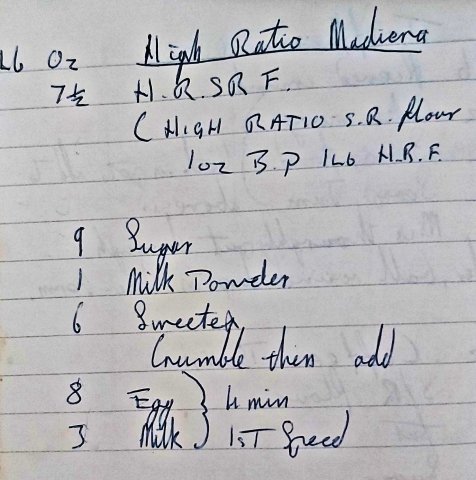 Lb Oz High Ratio Madiera
7½ H.R.SR F.
( HIGH RATIO S.R. flour
1oz B.P 1Lb H.R.F.
9 Sugar
1 Milk Powder
6 Sweetex
Crumble then add
8 Egg } 4 min
3 Milk } 1ST Speed